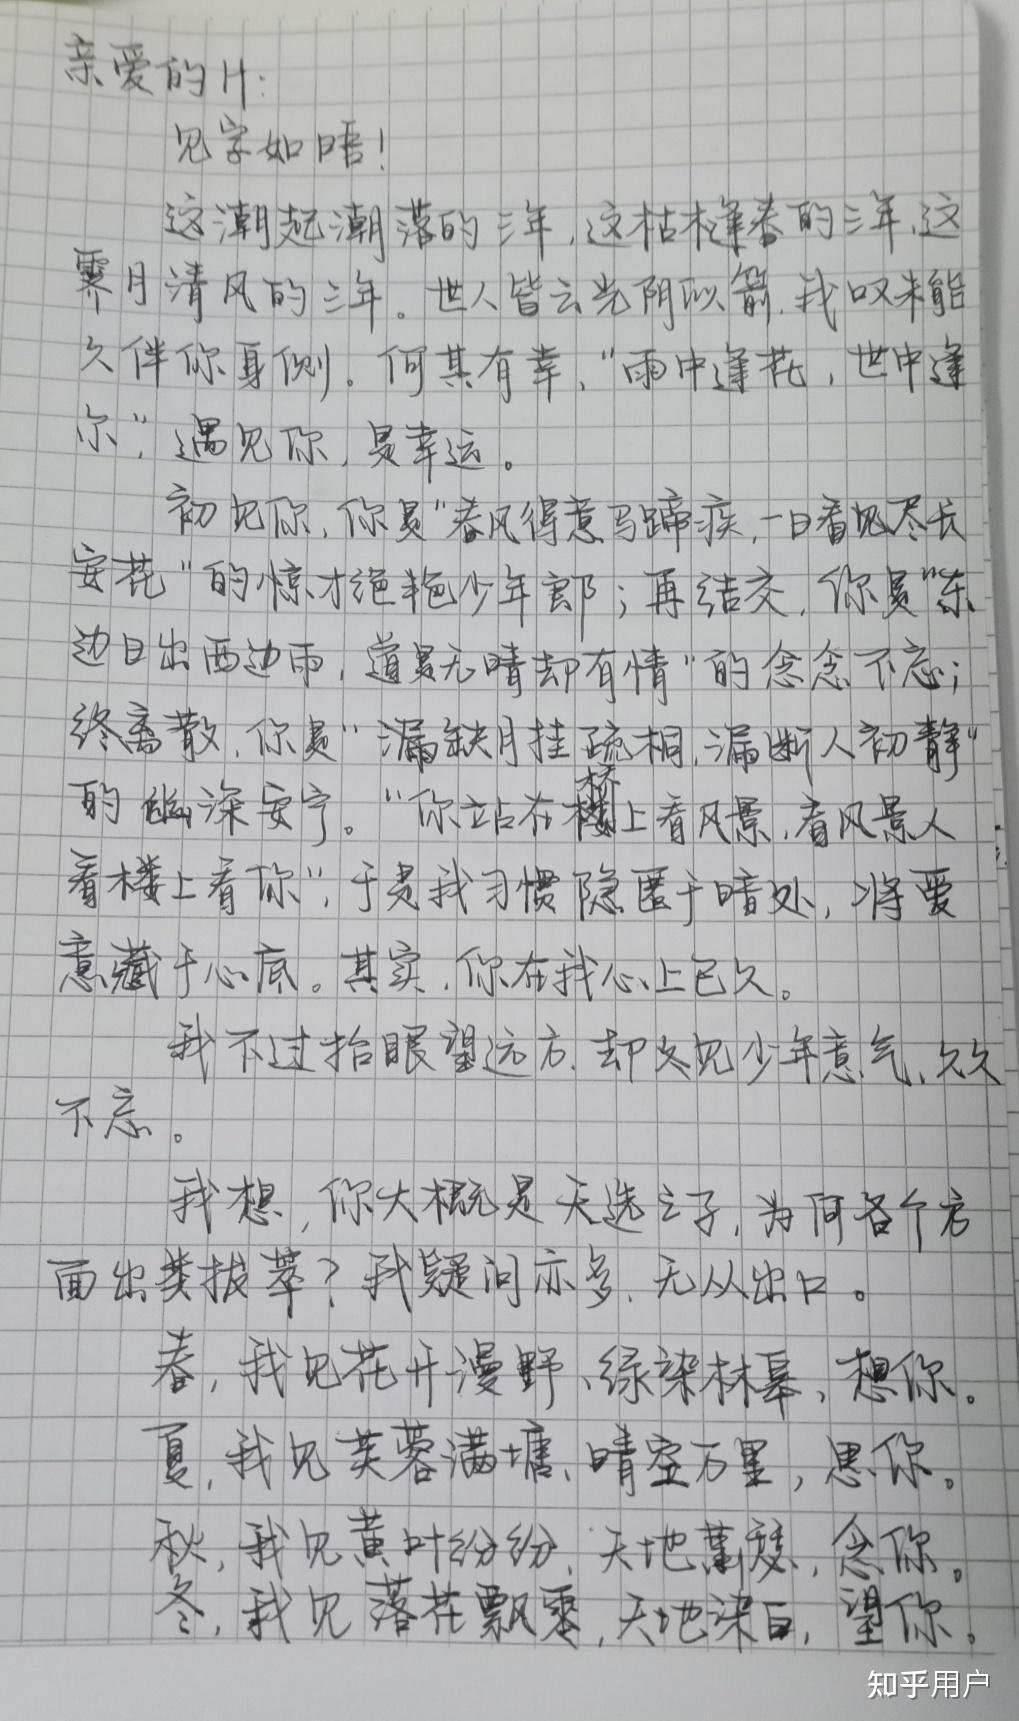 亲爱的H:
见字如晤!
这潮起潮落的三年,这枯木逢春的三年,这
霁月清风的三年。世人皆云光阴似箭,我叹未能
久伴你身侧。何其有幸,"雨中逢花,世中逢
尔",遇见你,是幸运。
初见你,你是"春风得意马蹄疾,一日看见尽长
安花"的惊才绝艳少年郎;再结交,你是"东
边日出西边雨,道是无晴却有情"的念念不忘;
终离散,你是"漏缺月挂疏桐,漏断人初静"
的幽深安宁。"你站在桥上看风景,看风景人
看楼上看你",于是我习惯隐匿于暗处,将爱
意藏于心底。其实,你在我心上已久。
我不过抬眼望远方,却久见少年意气,久久
不忘。
我想,你大概是天选之子,为何各个方
面出类拔萃?我疑问亦多,无从出口。
春,我见花开漫野、绿染林,想你。
夏,我见芙蓉满塘、晴空万里,思你。
秋,我见黄叶纷纷,天地萧瑟,念你。
冬,我见落花飘零,天地染白,望你。
知乎用户